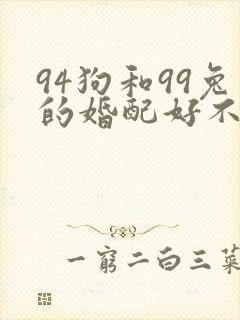 94狗和99兔
的婚配好不
一窮二白三菜